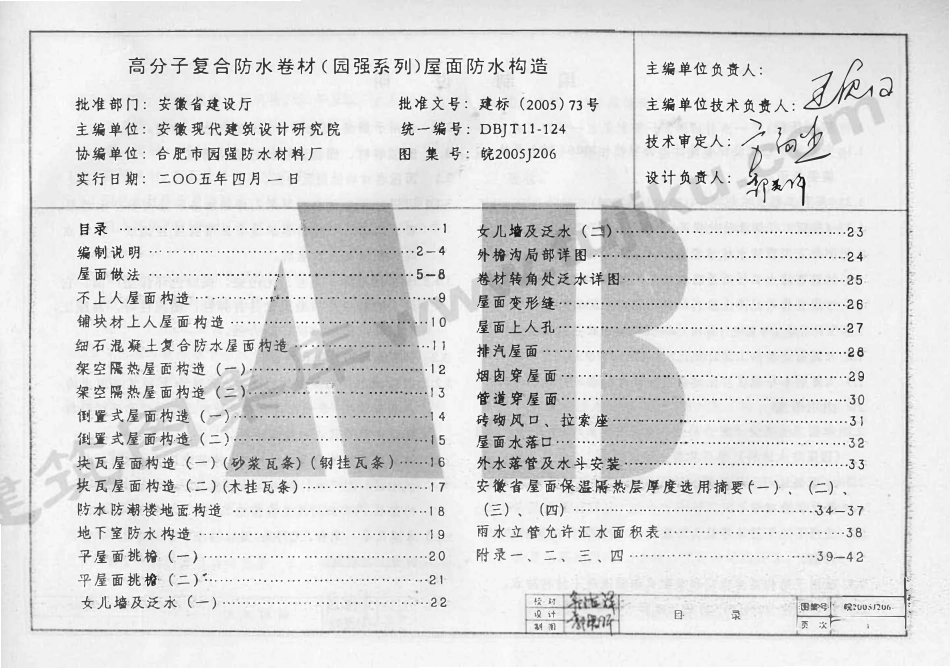 高分子复合防水卷材(园强系列)屋面防水构造
批准部门：安徽省建设厅
批准文号：建标(2005)73号
主编单位：安徽现代建筑设计研究院
统一编号：DBJT11-124
协编单位：合肥市园强防水材料厂
图集号：皖2005J206
实行日期：二〇〇五年四月一日
主编单位负责人：
主编单位技术负责人：
技术审定人：
设计负责人：
目录 1
编制说明 2-4
屋面做法 5-8
不上人屋面构造 9
铺块材上人屋面构造 10
细石混凝土复合防水屋面构造 11
架空隔热屋面构造(一) 12
架空隔热屋面构造(二) 13
倒置式屋面构造(一) 14
倒置式屋面构造(二) 15
块瓦屋面构造(一)(砂浆瓦条)(钢挂瓦条) 16
块瓦屋面构造(二)(木挂瓦条) 17
防水防潮楼地面构造 18
地下室防水构造 19
平屋面挑檐(一) 20
平屋面挑檐(二) 21
女儿墙及泛水(一) 22
女儿墙及泛水(二) 23
外檐沟局部详图 24
卷材转角处泛水详图 25
屋面变形缝 26
屋面上人孔 27
排汽屋面 28
烟囱穿屋面 29
管道穿屋面 30
砖砌风口、拉索座 31
屋面水落口 32
外水落管及水斗安装 33
安徽省屋面保温隔热层厚度选用摘要(一)、(二)、
(三)、(四) 34-37
雨水立管允许汇水面积表 38
附录一、二、三、四 39-42
校对
设计
制图
目 录
图集号 皖2005J206
页次 1